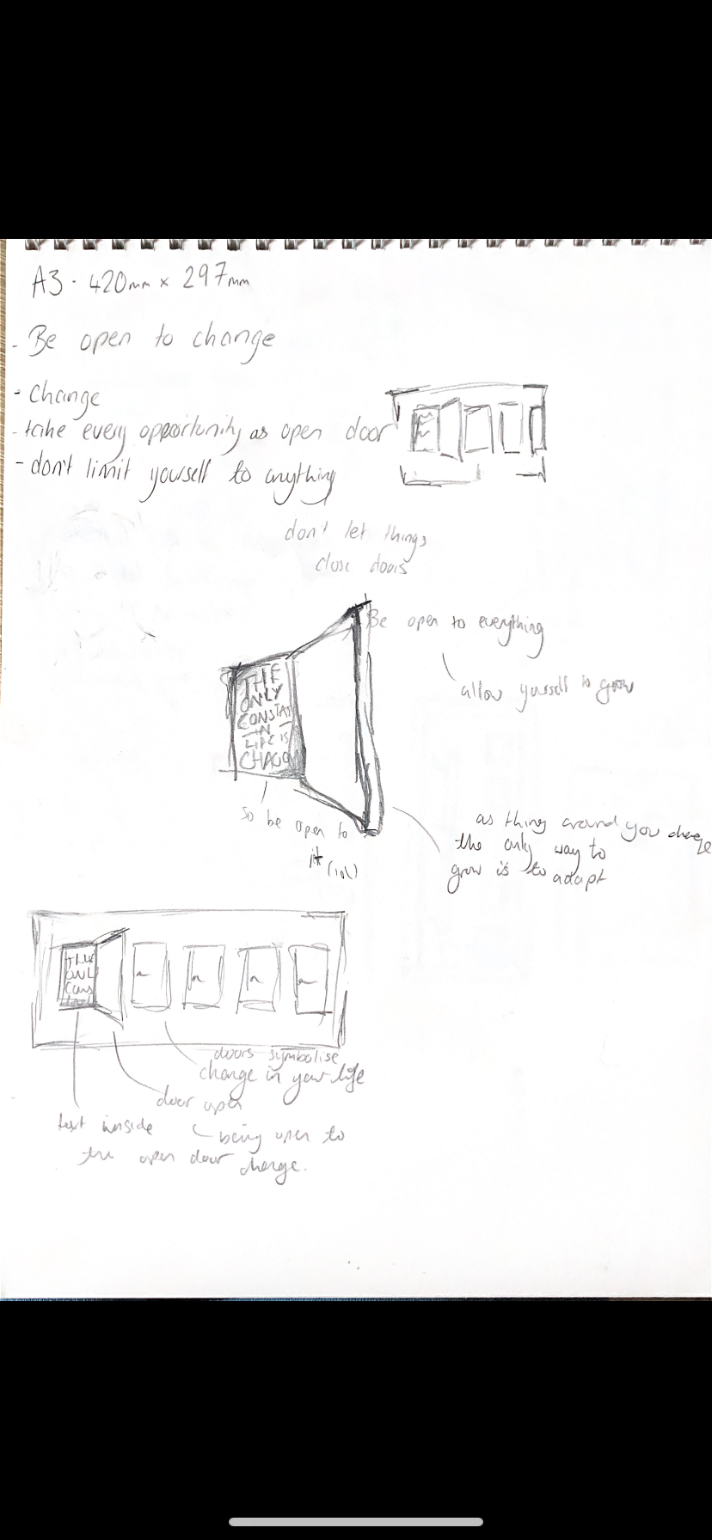 A3 · 420mm x 297mm
- Be open to change
- Change
- take every opportunity as open door
- don't limit yourself to anything
don't let things
close doors
Be open to everything
allow yourself to grow
THE
ONLY
CONSTA
IN
LIFE IS
CHAGON
so be open to
it (lol)
as thing around you change
the only way to
grow is to adapt
THE
ONL
CONS
doors symbolise
change in your life
door open
text inside
the open door
being open to
change.